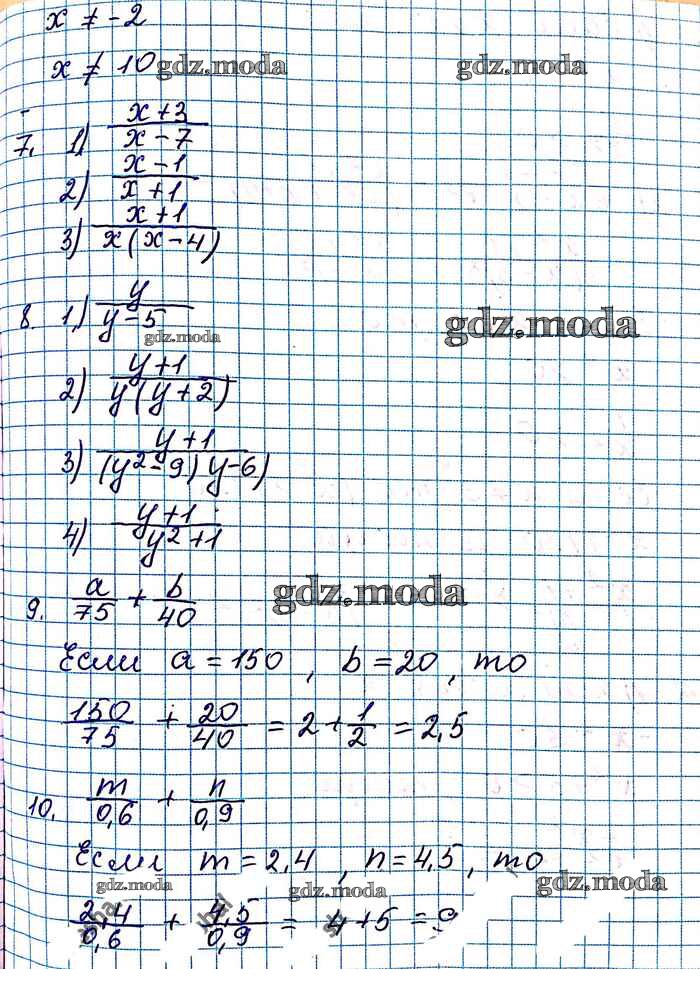 x ≠ -2
x ≠ 10 gdz.moda gdz.moda
7. 1) (x+3)/(x-7)
2) (x-1)/(x+1)
3) (x+1)/(x(x-4))
8. 1) y/(y-5) gdz.moda
gdz.moda
2) (y+1)/(y(y+2))
3) (y+1)/((y²-9)y-6)
4) (y+1)/(y²+1)
9. a/75 + b/40 gdz.moda
Если a=150, b=20, то
150/75 + 20/40 = 2+1/2 = 2,5
10. m/0,6 + n/0,9
Если m=2,4, n=4,5, то
gdz.moda gdz.moda gdz.moda
2,4/0,6 + 4,5/0,9 = 4+5 = 9